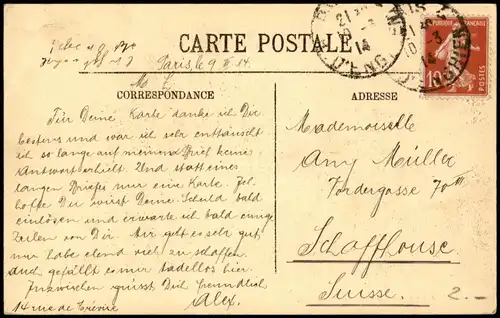 CARTE POSTALE
Paris le 9 III 14.
CORRESPONDANCE
ADRESSE
M. L.
Für Deine Karte danke ich Dir
bestens und war ich sehr enttäuscht
ich so lange auf meinen Brief keine
Antwort erhielt. Und statt eines
langen Briefes nur eine Karte. Ich
hoffe Du wirst Deine Schuld bald
einlösen und erwarte ich bald einige
Zeilen von Dir. Mir geht es sehr gut
nur habe elend viel zu schaffen.
Auch gefällt es mir tadellos hier.
Inzwischen grüsst Dich freundlich
14 rue de Trévise Alex.
Mademoiselle
Any Müller
Vordergasse 70III
Schaffhouse
Suisse.
2.-
RÉPUBLIQUE FRANÇAISE
10
POSTES
21
10 - 3
14
D'ENGHIEN